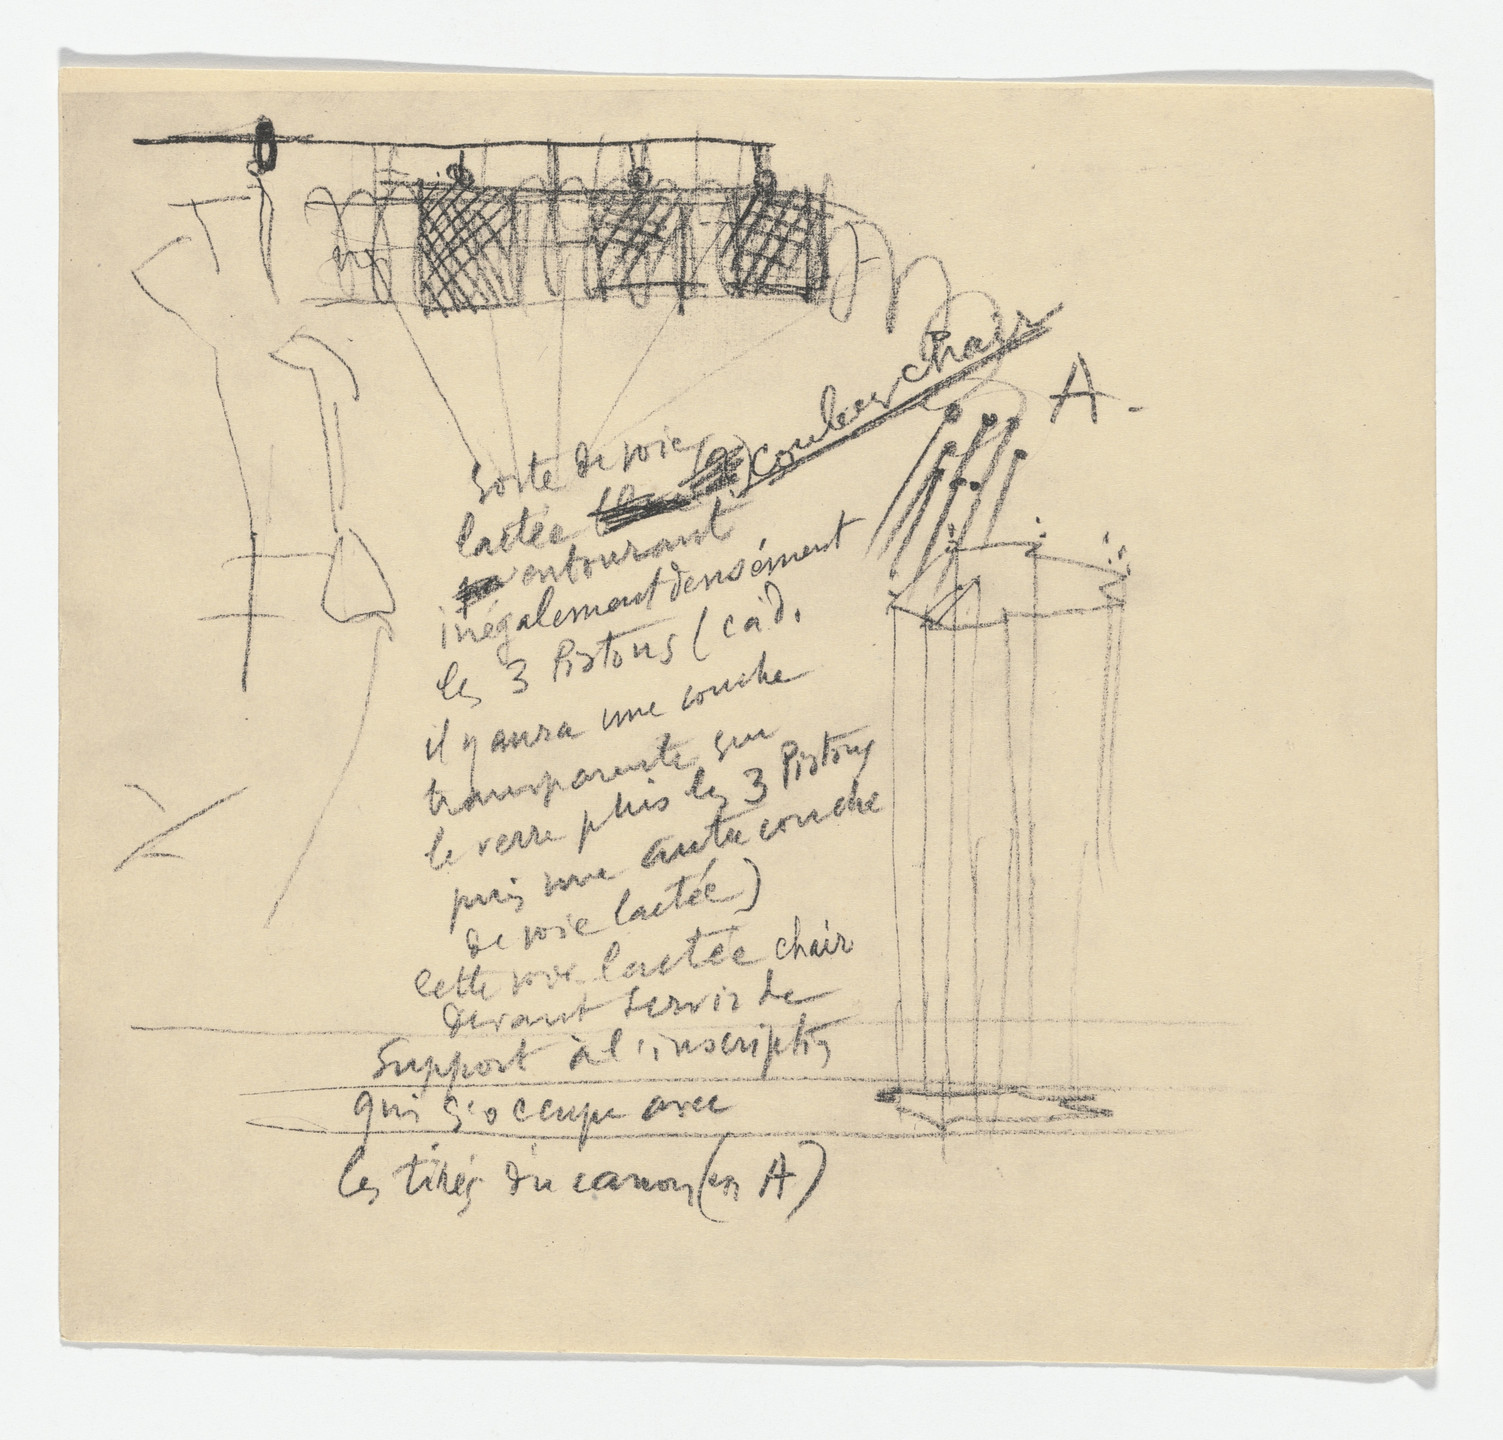 A.
Sorte de voie
lactée couleur chair
entourant
inégalement densément
les 3 Pistons (càd.
il y aura une couche
transparente sur
le verre puis les 3 Pistons
puis une autre couche
de voie lactée)
Cette voie lactée chair
devant servir de
Support à l'inscription
qui s'occupe avec
les tirés du canon (en A)